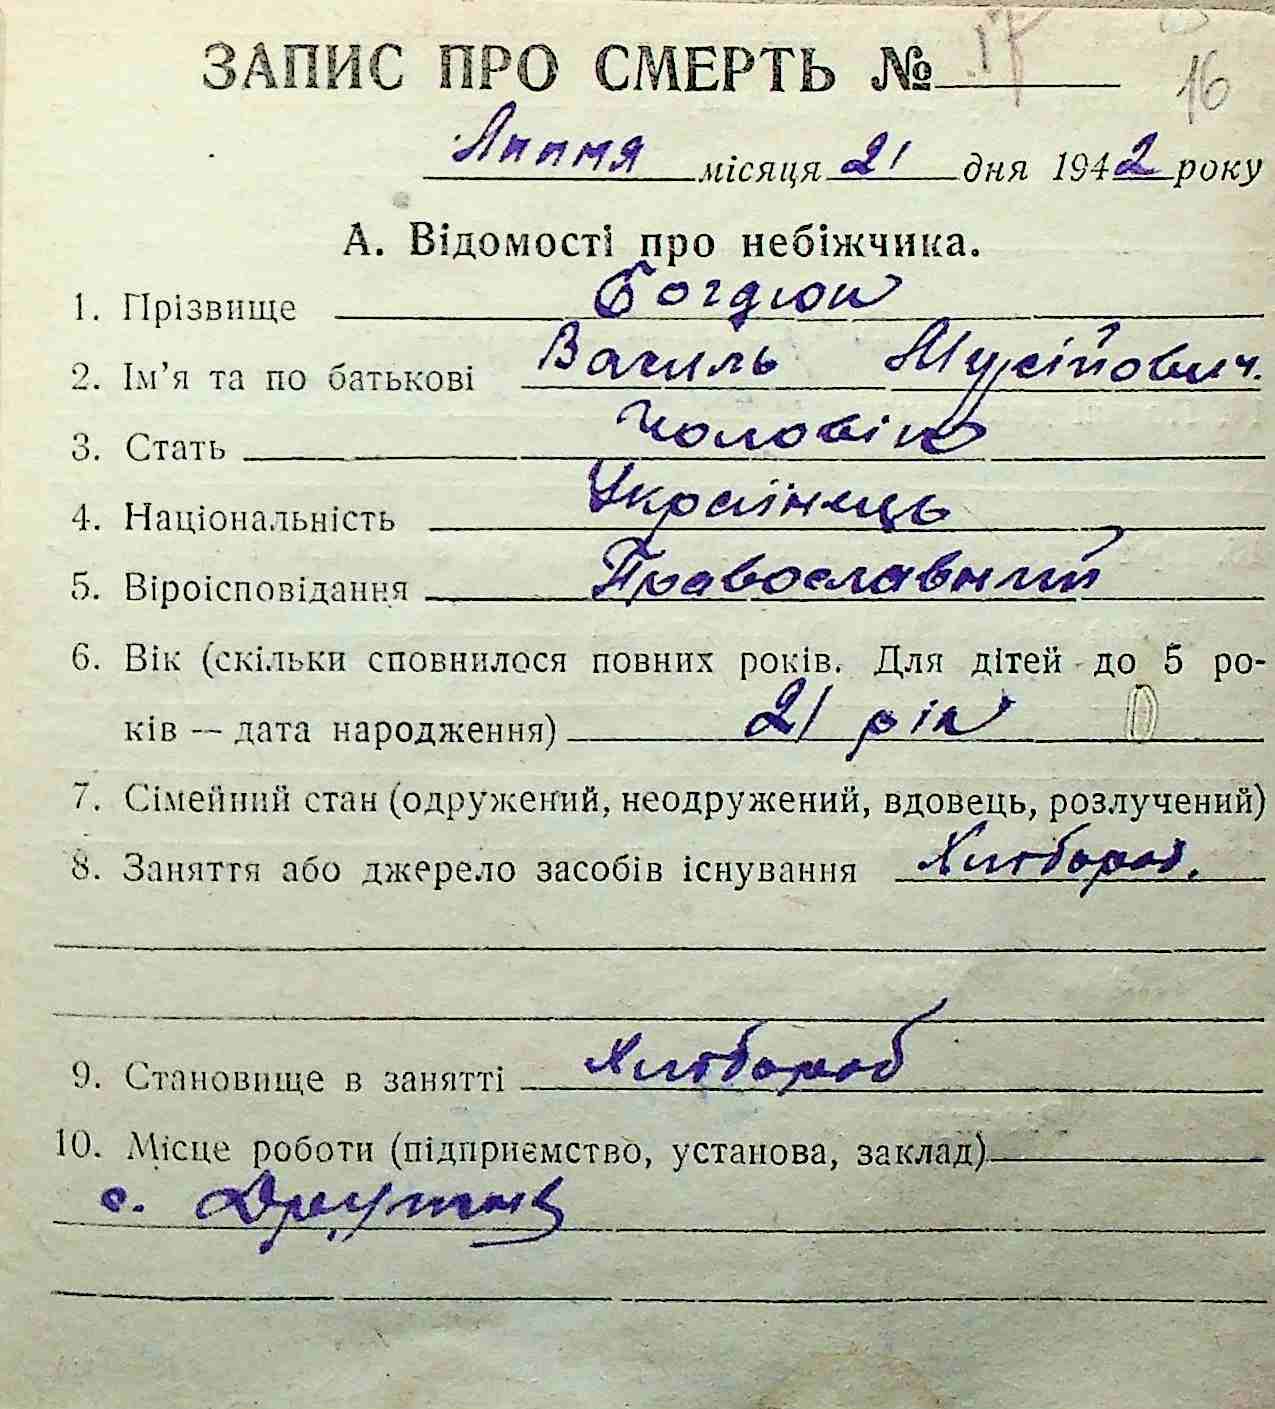 ЗАПИС ПРО СМЕРТЬ № 17
16
Липня місяця 21 дня 1942 року
А. Відомості про небіжчика.
1. Прізвище Богдюк
2. Ім'я та по батькові Василь Мусійович.
3. Стать Чоловік
4. Національність Українець
5. Віроісповідання Православний
6. Вік (скільки сповнилося повних років. Для дітей до 5 ро-
ків — дата народження) 21 рік
7. Сімейний стан (одружений, неодружений, вдовець, розлучений)
8. Заняття або джерело засобів існування Хлібороб.
9. Становище в занятті Хлібороб
10. Місце роботи (підприємство, установа, заклад)
с.